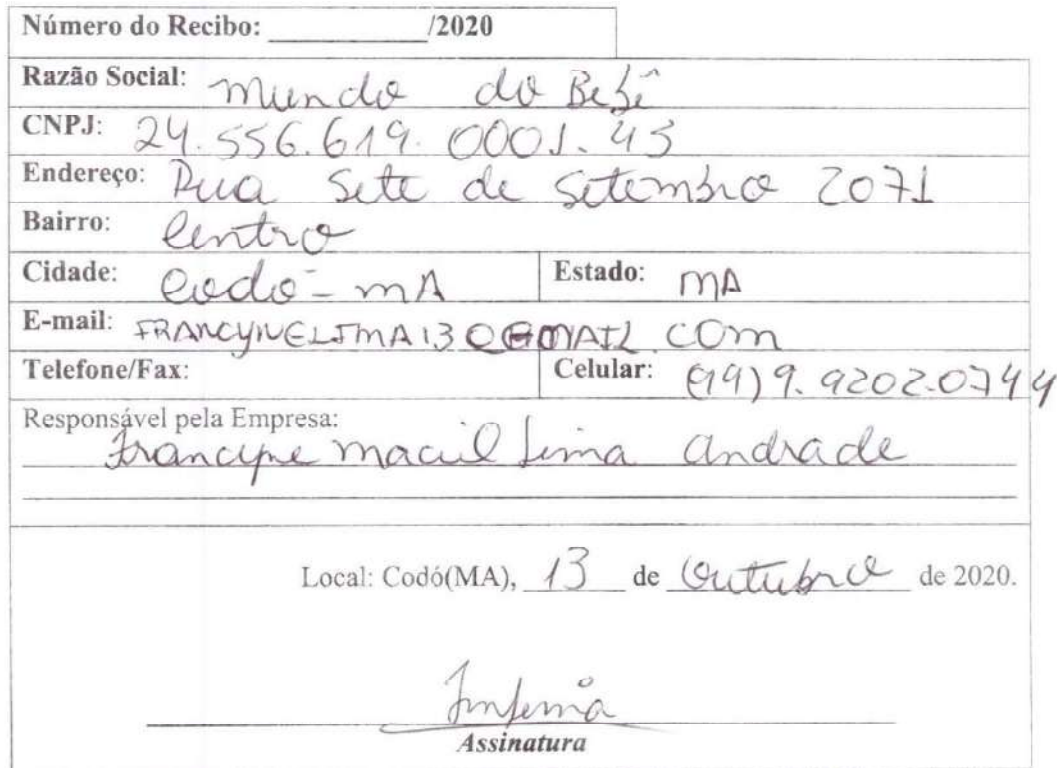 Número do Recibo: ____________/2020
Razão Social: Mundo do Bebê
CNPJ: 24.556.619.0001.43
Endereço: Rua Sete de Setembro 2071
Bairro: Centro
Cidade: Codó - MA Estado: MA
E-mail: FRANCYNELIMA13@GMAIL.COM
Telefone/Fax: Celular: (99) 9.9202.0744
Responsável pela Empresa:
Francyne Maciel Lima Andrade
Local: Codó(MA), 13 de Outubro de 2020.
Assinatura